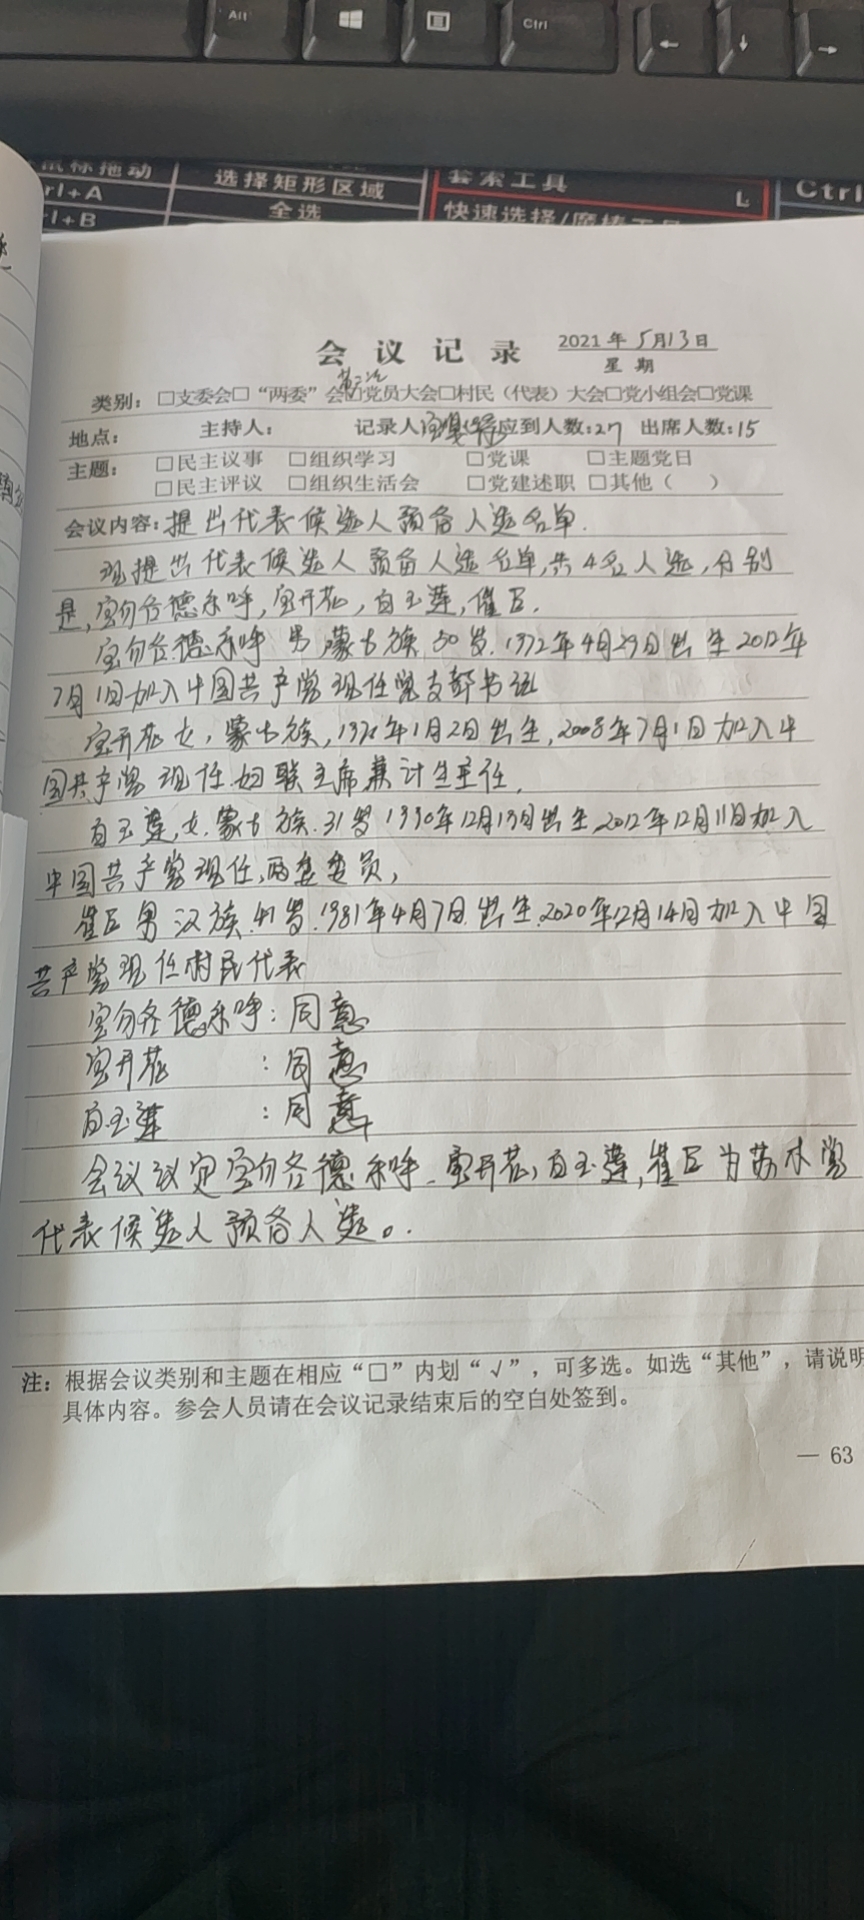 Alt
Ctrl
鼠标拖动 选择矩形区域 套索工具 L Ctrl
rl+A 全选 快速选择/魔棒工具
rl+B
会议记录 2021年5月13日
星期
第二次
类别：□支委会□“两委”会□党员大会□村民（代表）大会□党小组会□党课
地点： 主持人： 记录人 应到人数：27 出席人数：15
主题： □民主议事 □组织学习 □党课 □主题党日
□民主评议 □组织生活会 □党建述职 □其他（ ）
会议内容：提出代表候选人预备人选名单.
现提出代表候选人预备人选名单,共4名人选,分别
是,宝勿吞德乐呼,宝开花,白玉莲,崔臣.
宝勿吞德乐呼 男 蒙古族 50岁.1972年4月29日出生 2012年
7月1日加入中国共产党 现任党支部书记
宝开花 女,蒙古族,1972年1月2日出生,2008年7月1日加入中
国共产党 现任妇联主席兼计生主任.
白玉莲,女.蒙古族.31岁 1990年12月19日出生 2012年12月11日加入
中国共产党现任,两委委员,
崔臣 男 汉族.41岁.1981年4月7日.出生.2020年12月14日加入中国
共产党现任村民代表
宝勿吞德乐呼：同意
宝开花 ：同意
白玉莲 ：同意
会议议定宝勿吞德乐呼、宝开花,白玉莲,崔臣为苏木党
代表候选人预备人选。.
注：根据会议类别和主题在相应“□”内划“√”，可多选。如选“其他”，请说明
具体内容。参会人员请在会议记录结束后的空白处签到。
— 63